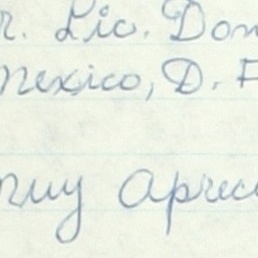 r. Lic. Dom
Mexico, D. F
muy apreci